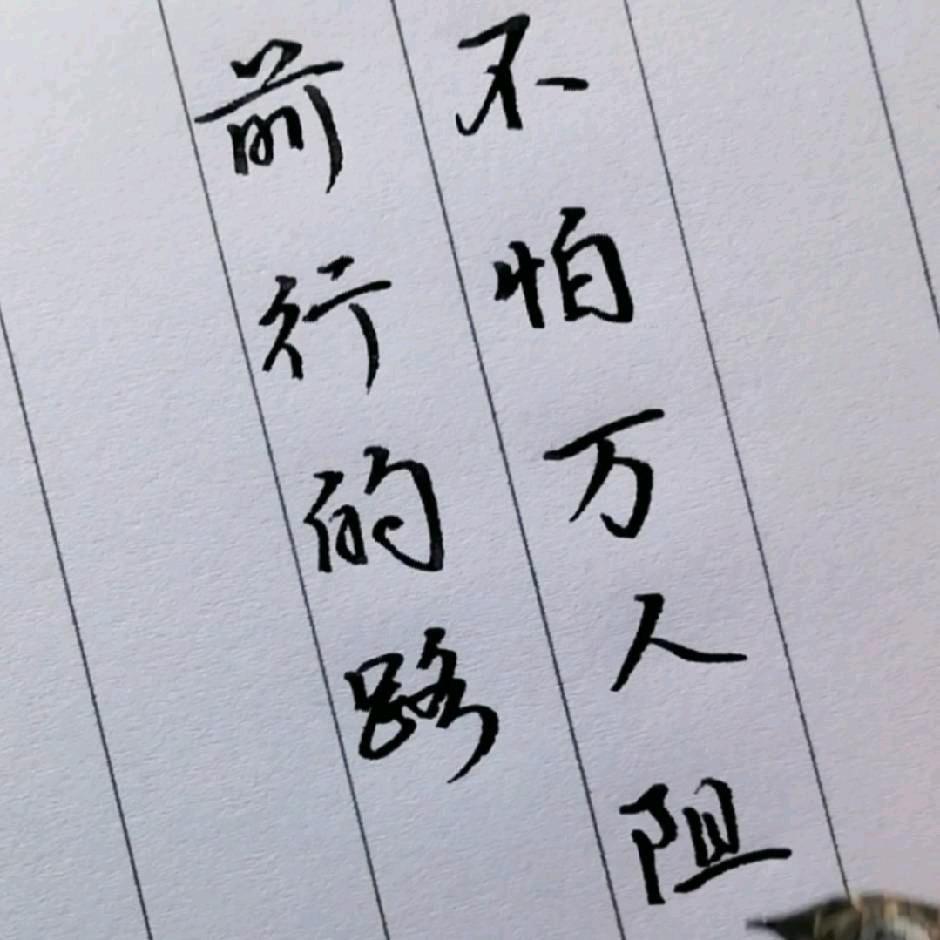 前行的路
不怕万人阻